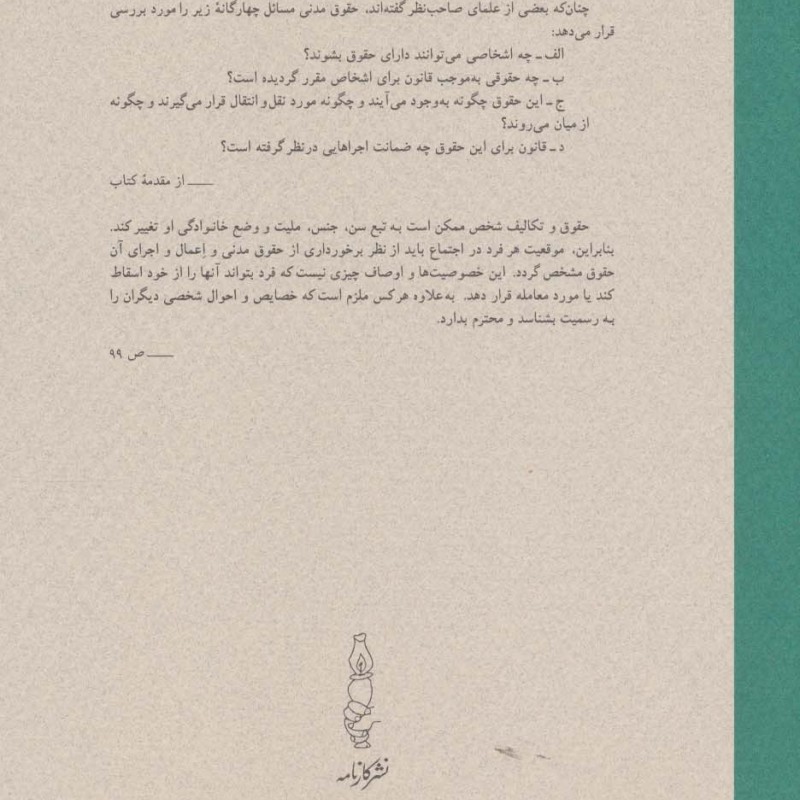 چنان‌که بعضی از علمای صاحب‌نظر گفته‌اند، حقوق مدنی مسائل چهارگانهٔ زیر را مورد بررسی
قرار می‌دهد:
الف ـ چه اشخاصی می‌توانند دارای حقوق بشوند؟
ب ـ چه حقوقی به‌موجب قانون برای اشخاص مقرر گردیده است؟
ج ـ این حقوق چگونه به‌وجود می‌آیند و چگونه مورد نقل و انتقال قرار می‌گیرند و چگونه
از میان می‌روند؟
د ـ قانون برای این حقوق چه ضمانت اجراهایی در نظر گرفته است؟
ـــــ از مقدمهٔ کتاب
حقوق و تکالیف شخص ممکن است به تبع سن، جنس، ملیت و وضع خانوادگی او تغییر کند.
بنابراین، موقعیت هر فرد در اجتماع باید از نظر برخورداری از حقوق مدنی و اِعمال و اجرای آن
حقوق مشخص گردد. این خصوصیت‌ها و اوصاف چیزی نیست که فرد بتواند آنها را از خود اسقاط
کند یا مورد معامله قرار دهد. به‌علاوه هر کس ملزم است که خصایص و احوال شخصی دیگران را
به رسمیت بشناسد و محترم بدارد.
ـــــ ص ۹۹
نشر کارنامه